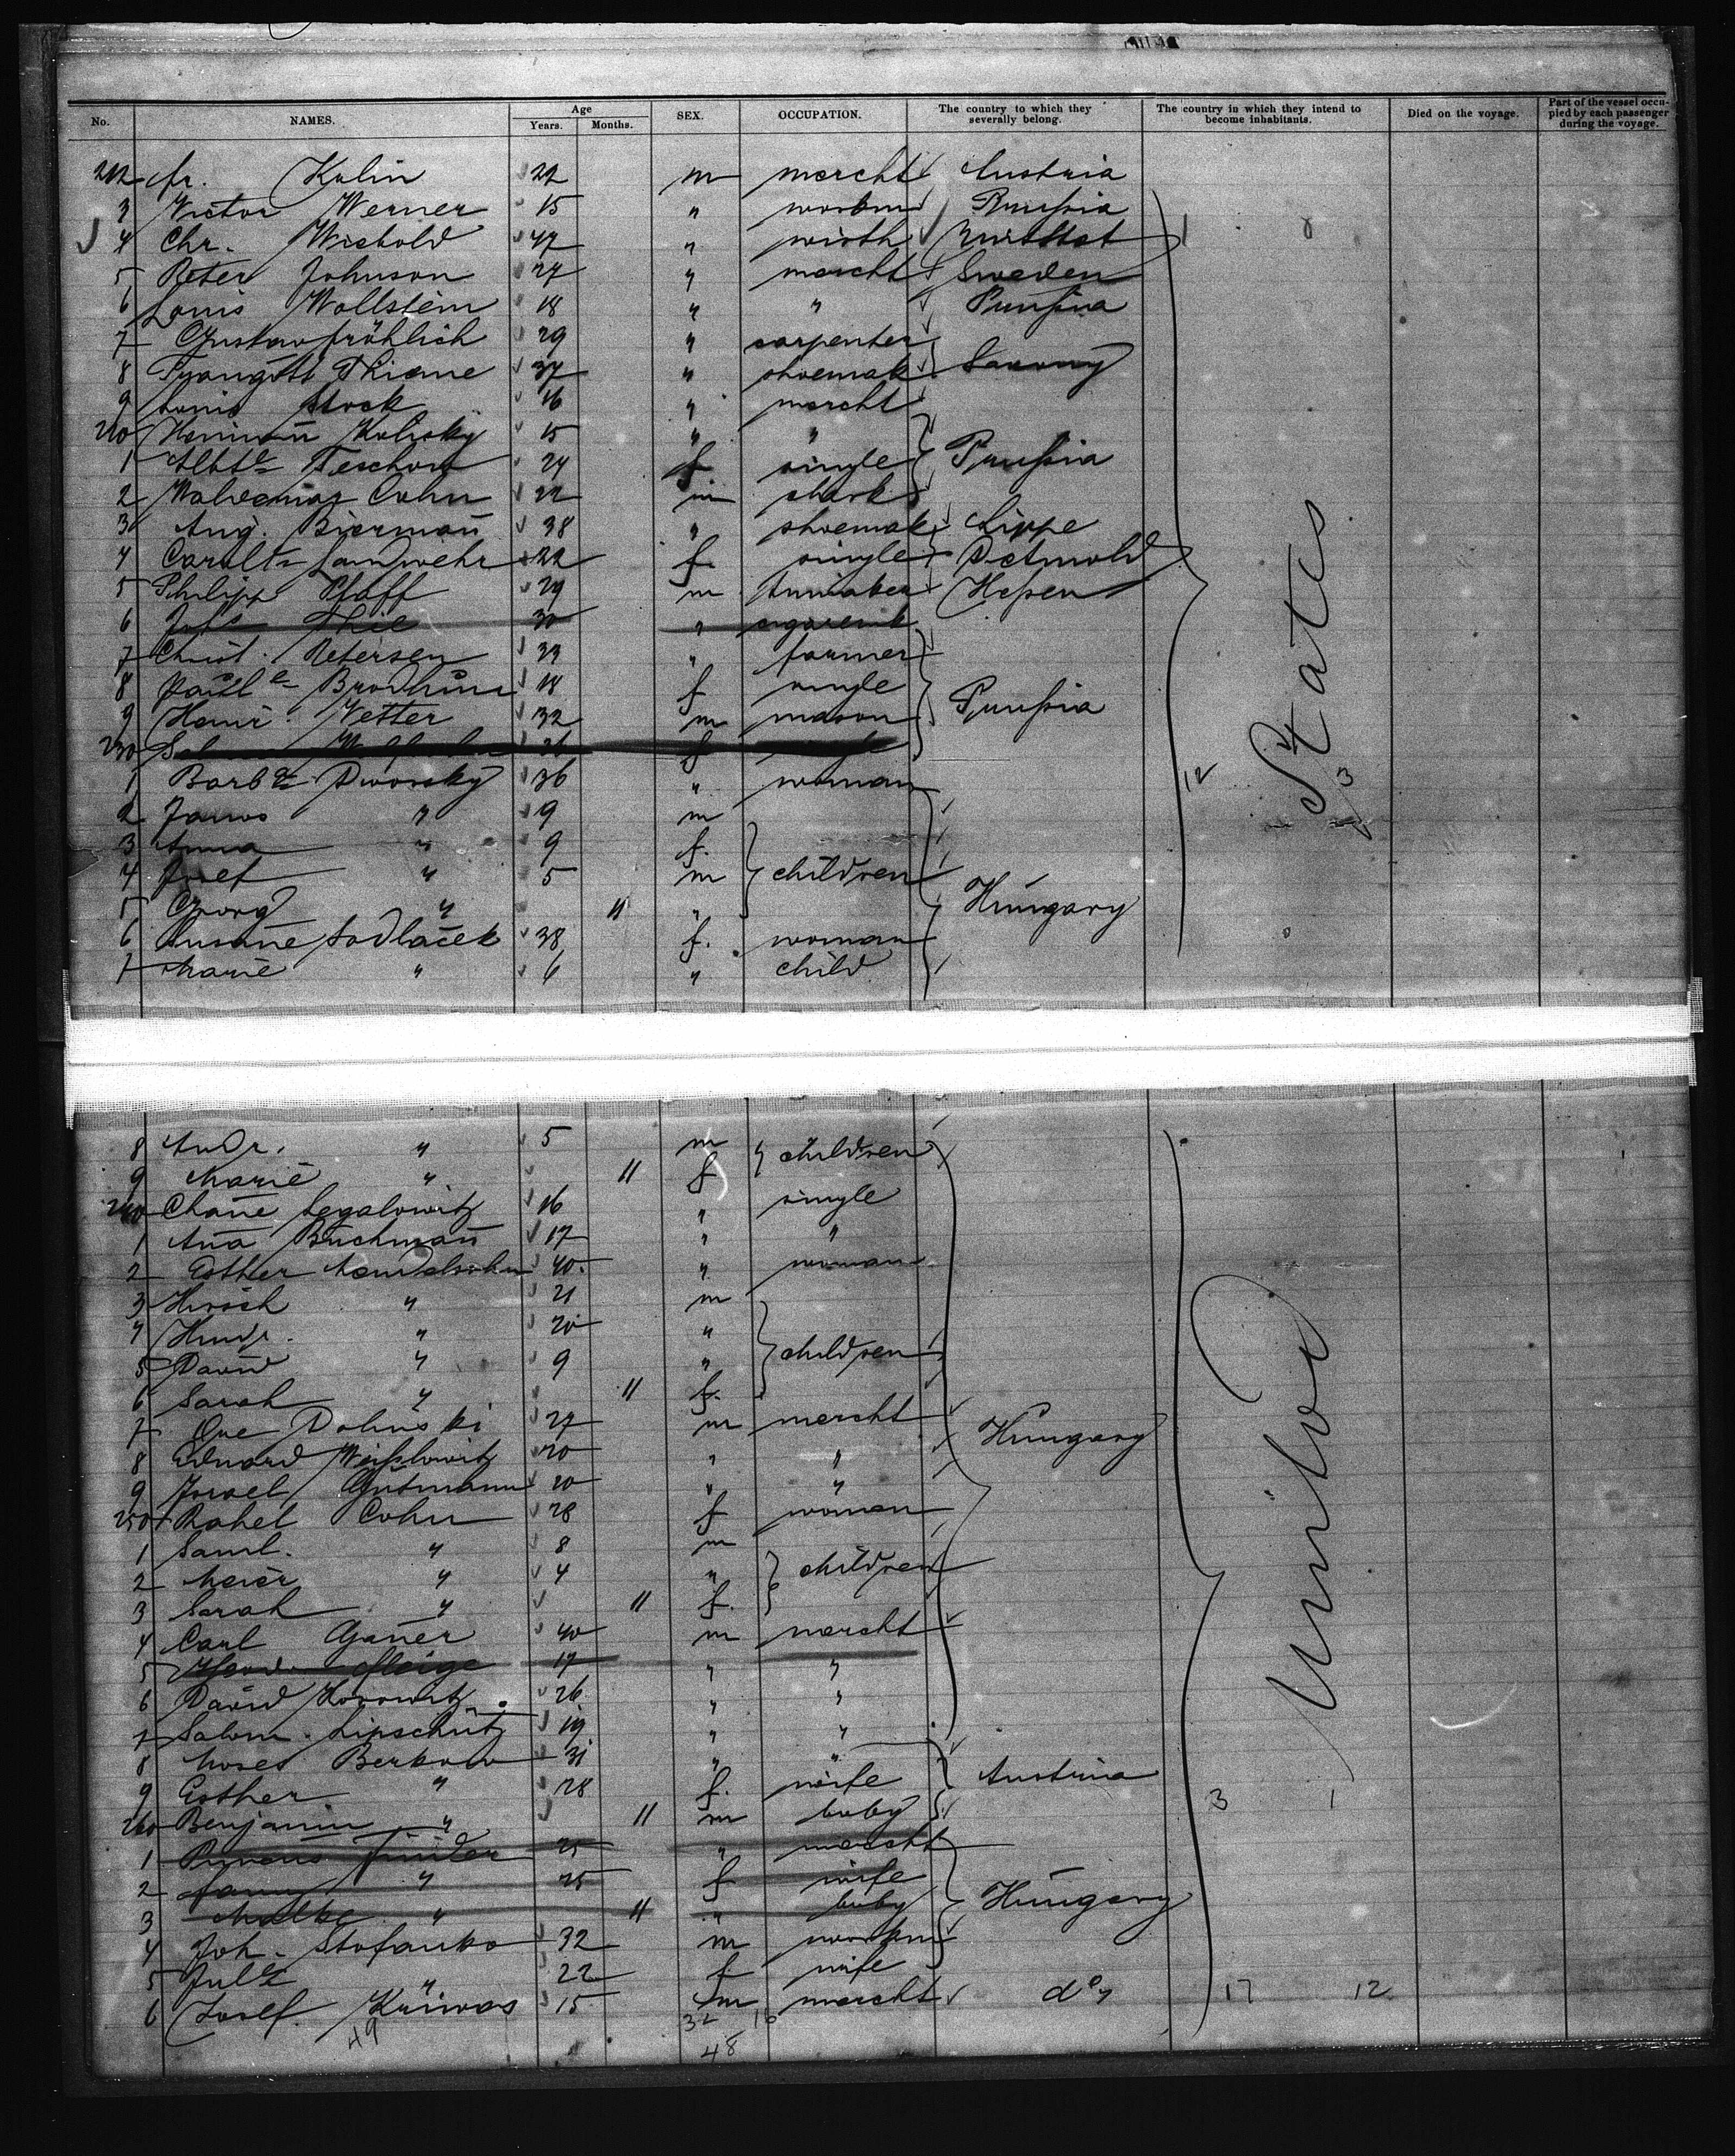 No. NAMES. Age Years. Months. SEX. OCCUPATION. The country to which they severally belong. The country in which they intend to become inhabitants. Died on the voyage. Part of the vessel occupied by each passenger during the voyage.
212 fr. Kulin 22 m mercht Austria
3 Victor Werner 15 " workm Prussia
4 Chr. Wiebold 47 " wirth
5 Peter Johnson 27 " mercht Sweden
6 Louis Wollstein 18 " " Prussia
7 Gustav fröhlich 29 " carpenter
8 Thieme 37 " shoemak Saxony
9 Louis Stock 16 " mercht
220 Hermañ Kolisky 15 " "
1 Teschow 24 f single Prussia
2 Waldemar Cohn 22 m clark
3 Aug. Biermañ 38 " shoemak Lippe
4 Landwehr 22 f. single Detmold
5 Philipp Pfaff 29 m Hessen
6 Thie 30 "
7 Christ. Petersen 33 " farmer
8 18 f single Prussia
9 Heinr. Vetter 32 m mason
230
1 Barba Dworsky 36 " woman
2 " 9 m
3 Anna " 9 f.
4 Josef " 5 m children
5 Georg " 11 " Hungary
6 Susañe Sodlaček 38 f. woman
7 Marie " 6 " child
States
8 Andr. " 5 m children
9 Marie " 11 f
240 Chañe Segalowitz 16 " single
1 Aña Buchmañ 17 " "
2 Esther Mendelsohn 40 " woman
3 Hirsch " 21 m
4 " 20 "
5 David " 9 " children
6 Sarah " 11 f.
7 27 m mercht Hungary
8 Eduard Weisslowitz 20 " "
9 Israel Gutmann 20 " "
250 Rahel Cohn 28 f woman
1 Saml. " 8 m
2 Meier " 4 " children
3 Sarah " 11 f.
4 Carl Gañer 40 m mercht
5 17 " "
6 David Horowitz 26 " "
7 Salom. Lipschütz 19 " "
8 Moses Berkow 31 " "
9 Esther " 28 f. wife Austria
260 Benjamin " 11 m baby
1 25 " mercht
2 fanny " 25 f wife
3 Malke " 11 " baby Hungary
4 Joh. Stofanko 32 m workm
5 Jula " 22 f. wife
6 Josef. Kriwos 15 m mercht do
United
12 3
3 1
17 12
49 32 16
48